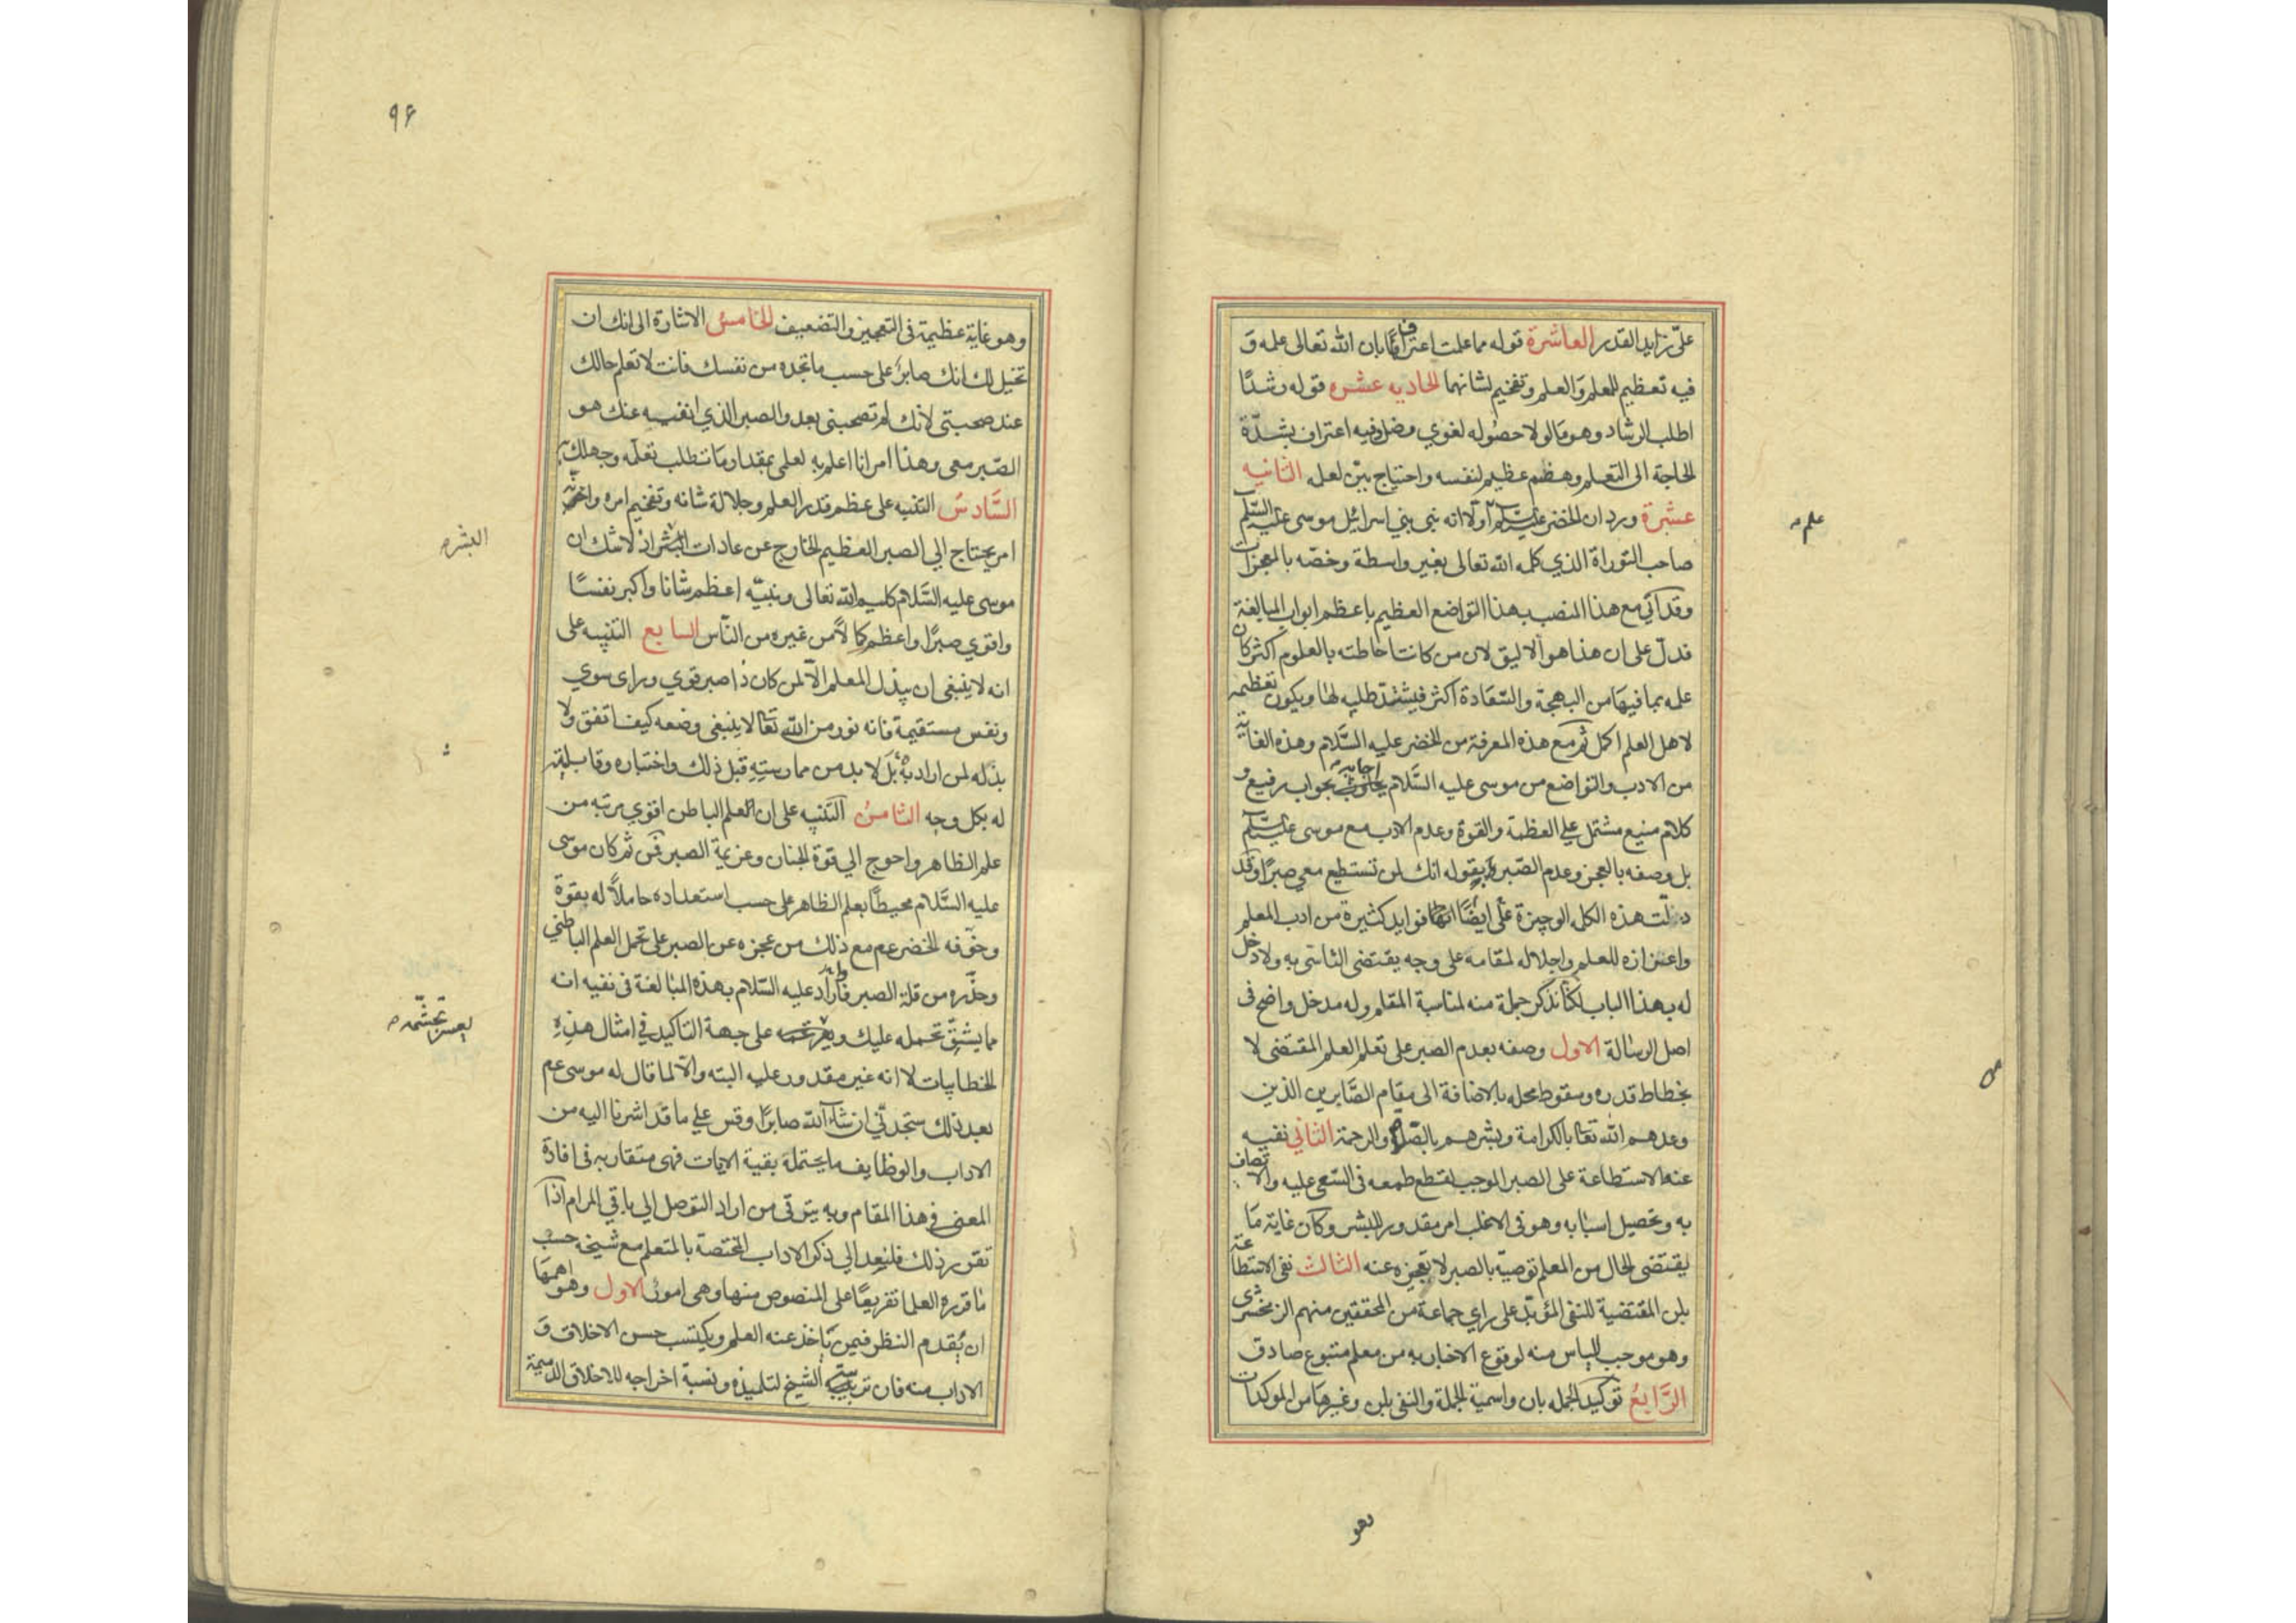 على تزايد القدر العاشرة قوله مما علمت اعترافا بان الله تعالى علمه و
فيه تعظيم للمعلم والعلم وتفخيم لشانهما الحاديه عشره قوله رشدًا
اطلب الرشاد وهو ما لولا حصوله لغوي وضل وفيه اعتراف بشدّة
الحاجة الى التعلم وهضم عظيم لنفسه واحتياج بيّن لعلمه الثانيه
عشرة ورد ان الخضر عليه السلم اولا انه نبى بني اسرائيل موسى عليه السلم
علم
صاحب التوراة الذي كلمه الله تعالى بغير واسطة وخصّه بالمعجزات
وقد اتى مع هذا المنصب بهذا التواضع العظيم باعظم ابواب المبالغة
فدلّ على ان هذا هو الاليق لان من كانت احاطته بالعلوم اكثر كان
علمه بما فيها من البهجة والسّعادة اكثر فيشتد طلبه لها ويكون تعظيمه
لاهل العلم اكمل ثم مع هذه المعرفة من الخضر عليه السّلام وهذه الغاية
من الادب والتواضع من موسى عليه السّلام اجابه بجواب رفيع و
كلام منيع مشتمل على العظمة والقوة وعدم الادب مع موسى عليه السلم
بل وصفه بالعجز وعدم الصّبر بقوله انك لن تستطيع معي صبرًا وقد
دلّت هذه الكلمه الوجيزة على ايضًا فوايد كثيرة من ادب المعلم
واعزازه للعلم واجلاله لمقامه على وجه يقتضى التاسّى به ولا دخل
له بهذا الباب لكنا نذكر جملة منه لمناسبة المقام وله مدخل واضح فى
اصل الرسالة الاول وصفه بعدم الصبر على تعلم العلم المقتضى لا
نخطاط قدره وسقوط محله بالاضافة الى مقام الصّابرين الذين
وعدهم الله تعا بالكرامة وبشرهم بالصلوة والرحمة الثاني نفيه
عنه الاستطاعة على الصبر الموجب لقطع طمعه فى السّعى عليه والاتصاف
به وتحصيل اسبابه وهو فى الاغلب امر مقدور للبشر وكان غاية ما
يقتضى الحال من المعلم توصيّه بالصبر لا تعجزه عنه الثالث نفى الاستطاعة
بلن المقتضية للنفى المؤبّد على راي جماعة من المحققين منهم الزمخشرى
وهو موجب للياس منه لوقوع الاخبار به من معلم متبوع صادق
الرّابع توكيد الجمله بان واسمية الجملة والنفى بلن وغيرها من الموكدات
وهو
٩۶
وهو غاية عظيمة فى التعجيز والتضعيف الخامس الاشارة الى انك ان
تخيل لك انك صابر على حسب ما تجده من نفسك فانت لا تعلم حالك
عند صحبتي لانك لم تصحبنى بعد والصبر الذي انفيه عنك هو
الصّبر معى وهذا امر انا اعلم به لعلمى بمقدار ما تطلب تعلّمه وجهلك به
السّادس التنبيه على عظم قدر العلم وجلالة شانه وتفخيم امره وانه
امر يحتاج الي الصبر العظيم الخارج عن عادات البشر اذ لا شك ان
البشر
موسى عليه السّلام كليم الله تعالى ونبيّه اعظم شانا واكبر نفسًا
واقوي صبرًا واعظم كمالاً من غيره من النّاس السابع التنبيه على
انه لا ينبغى ان يبذل المعلم الّا لمن كان ذا صبر قوي وراى سوي
ونفس مستقيمة فانه نور من الله تعا لا ينبغى وضعه كيف اتفق ولا
بذله لمن اراد به بل لا بد من ممارسته قبل ذلك واختباره وقابليته
له بكل وجه الثامن التنبيه على ان العلم الباطن اقوي مرتبه من
علم الظاهر واحوج الي قوة الجنان وعزيمة الصبر فمن ثم كان موسى
عليه السّلام محيطًا بعلم الظاهر على حسب استعداده حاملاً له بقوة
وخوّفه الخضر عم مع ذلك من عجزه عن الصبر على تحمل العلم الباطني
وحذّره من قلة الصبر فاراد عليه السّلام بهذه المبالغة فى نفيه انه
مما يشقّ تحمله عليك ويعسر تجشمه على جهة التاكيد في امثال هذه
يعسر تجشّمه
الخطابيات لا انه غير مقدور عليه البته والّا لما قال له موسى عم
بعد ذلك ستجدني ان شاء الله صابرًا وقس علي ما قد اشرنا اليه من
الاداب والوظايف ما يحتمله بقية الايات فهى متقاربه فى افادة
المعنى في هذا المقام وبه يترقى من اراد التوصل الي باقي المرام اذا
تقرر ذلك فلنعد الي ذكر الاداب المختصة بالمتعلم مع شيخه حسب
ما قرره العلما تفريعًا على المنصوص منها وهى امور الاول وهو اهمها
ان يُقدم النظر فيمن ياخذ عنه العلم ويكتسب حسن الاخلاق و
الاداب منه فان تربية الشيخ لتلميذه ونسبة اخراجه للاخلاق الذميمة